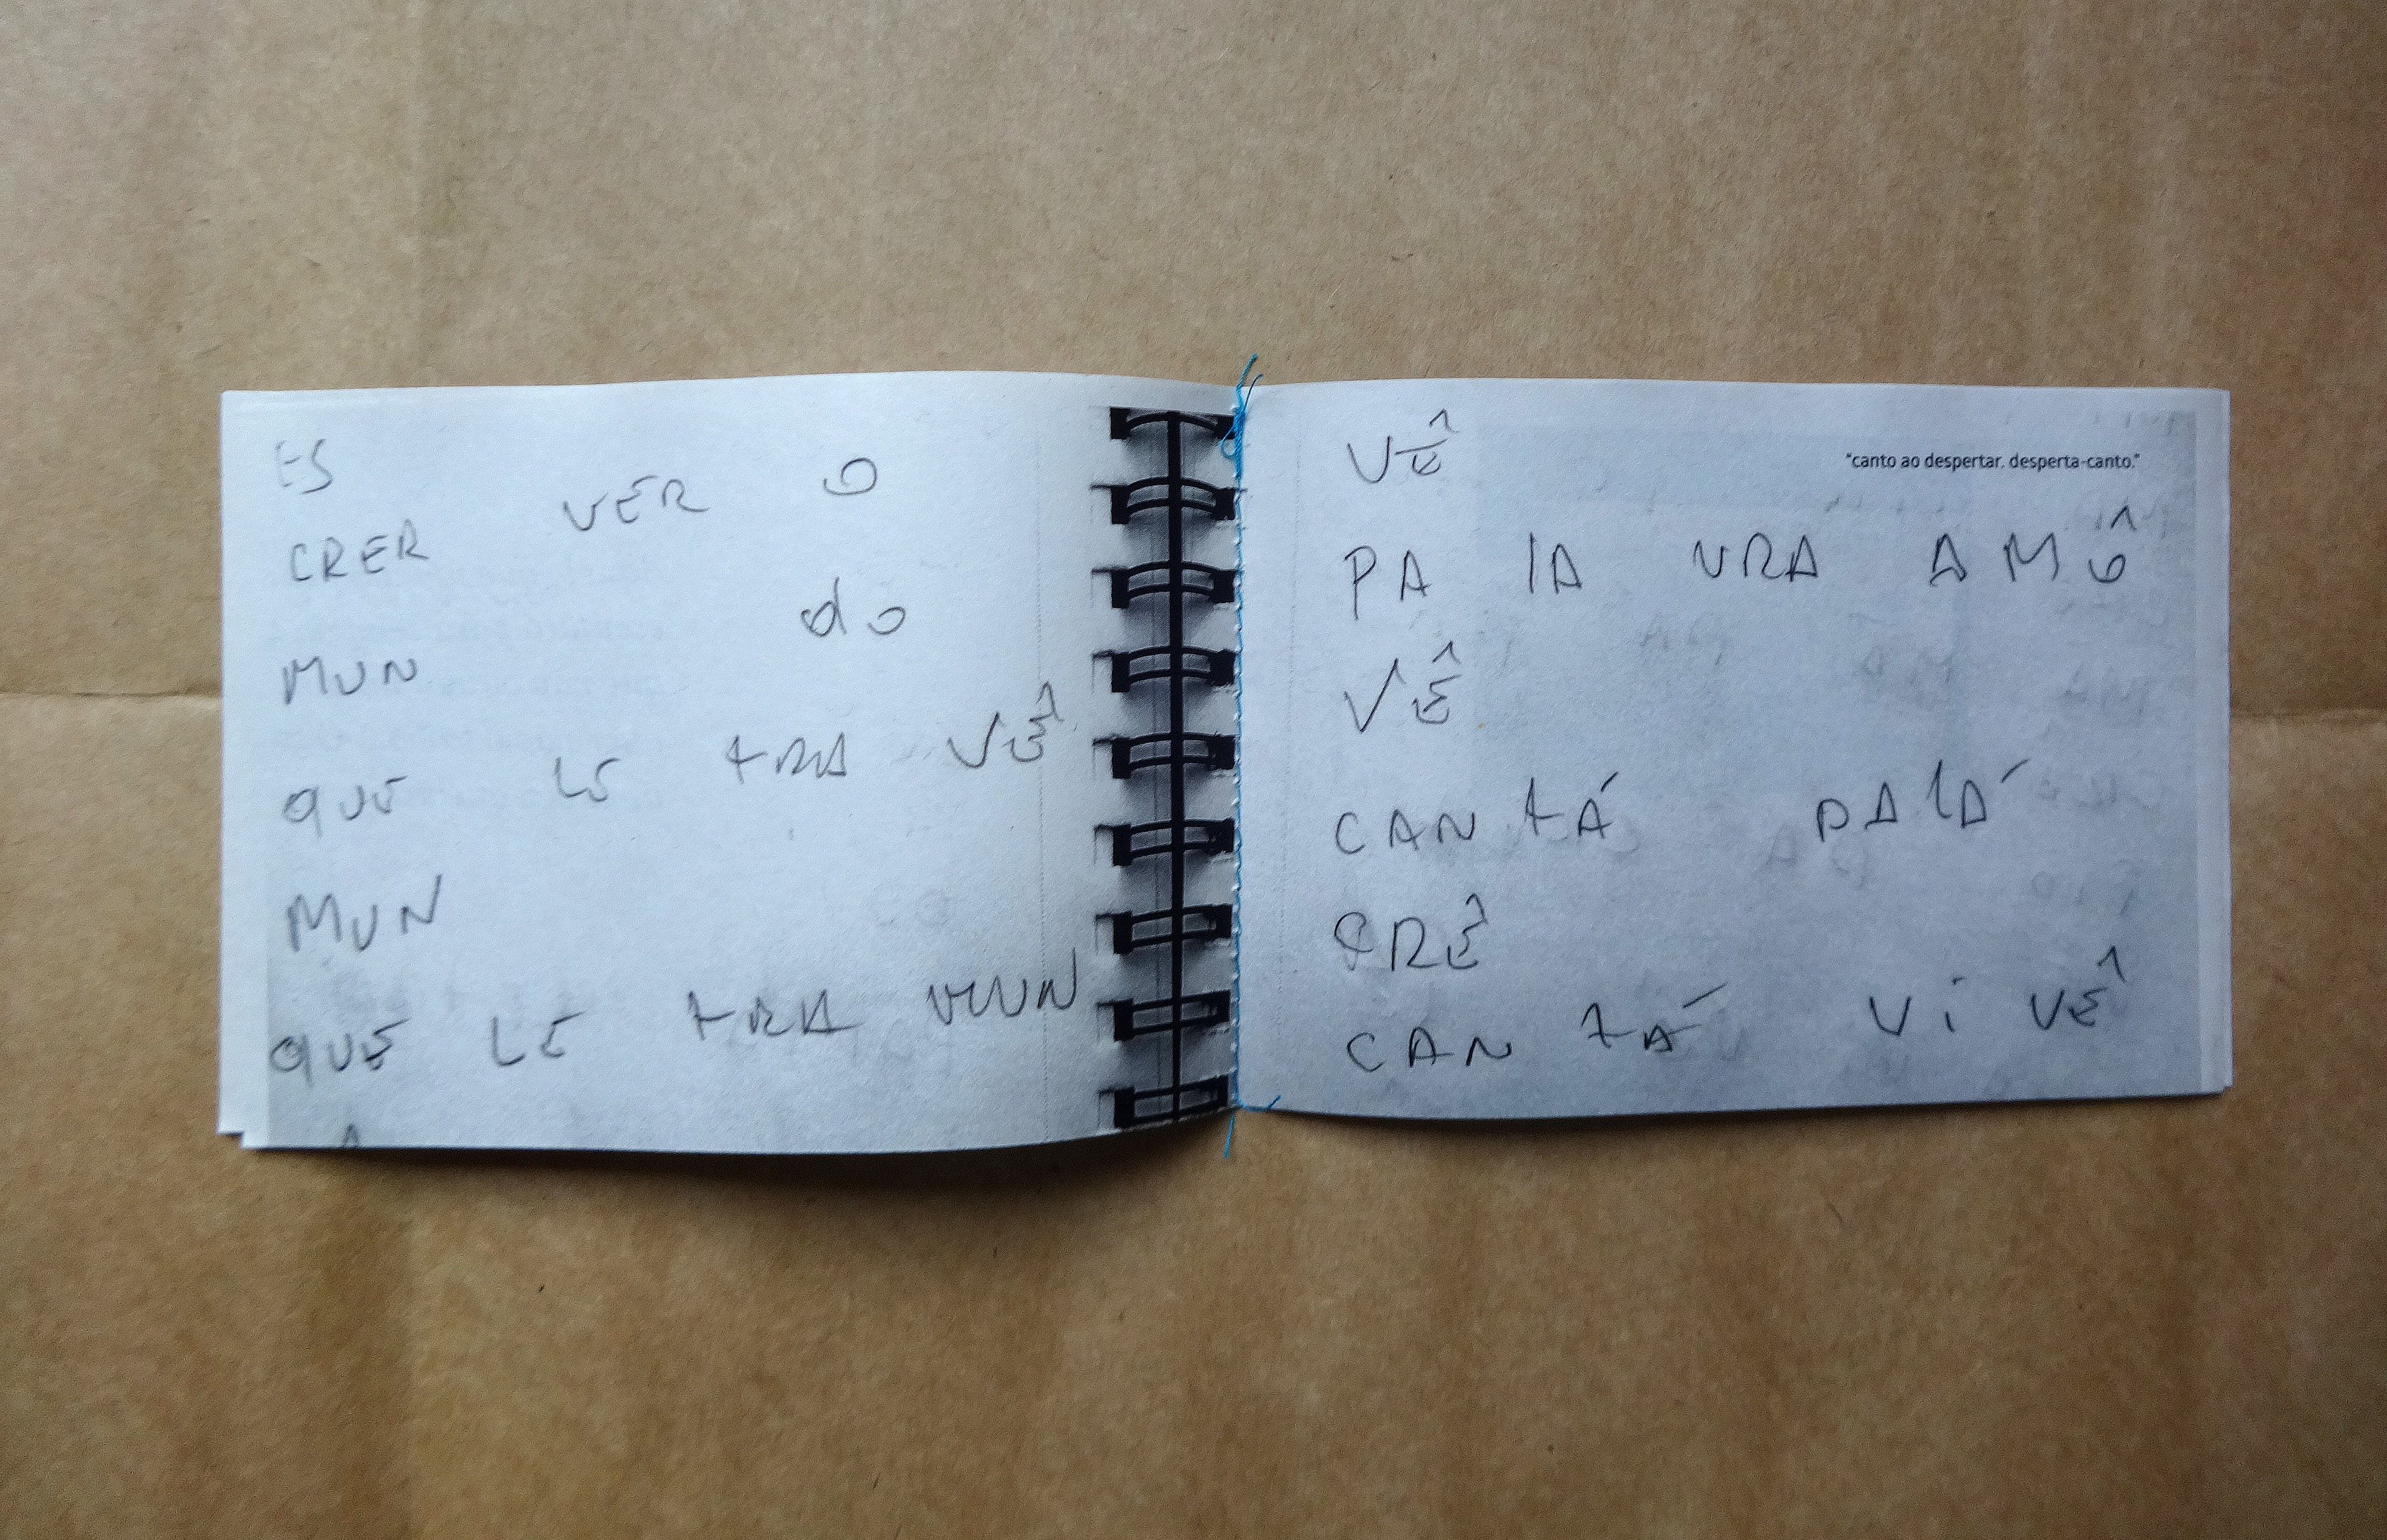 ES
CRER VER O
MUN do
QUE LE tRA VÊ
MUN
QUE LE tRA MUN
VÊ
"canto ao despertar. desperta-canto."
PA lA VRA AMÔ
VÊ
CAN tÁ PAlÁ
CRÊ
CAN tÁ Vi VÊ